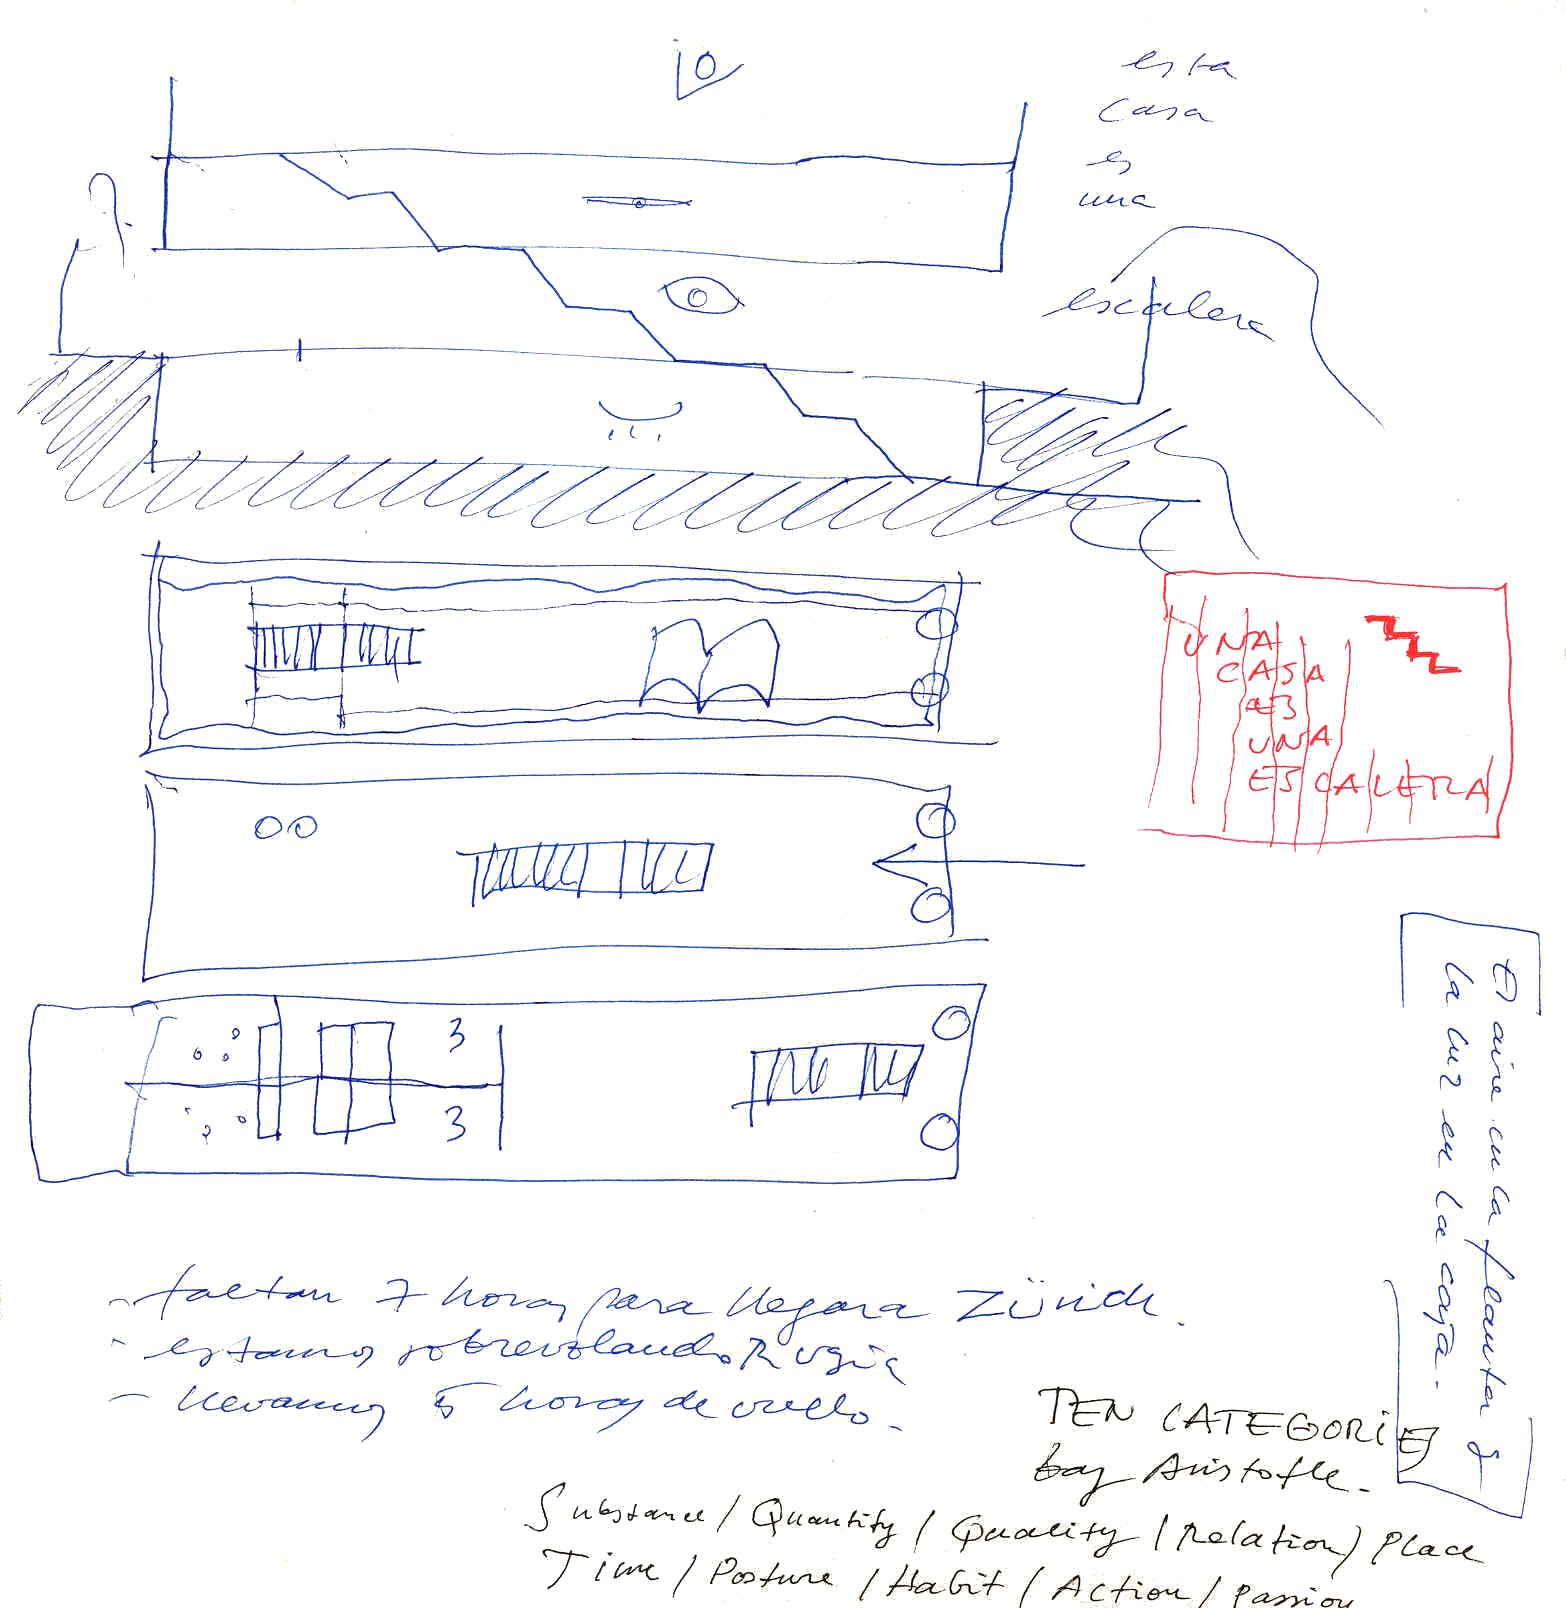 esta
casa
es
una
escalera
UNA
CASA
ES
UNA
ESCALERA
El aire en la flauta &
la luz en la casa.
3
3
- faltan 7 horas para llegar a Zürich.
- estamos sobrevolando Rusia
- llevamos 5 horas de vuelo.
TEN CATEGORIES
by Aristotle.
Substance / Quantity / Quality / Relation / Place
Time / Posture / Habit / Action / Passion